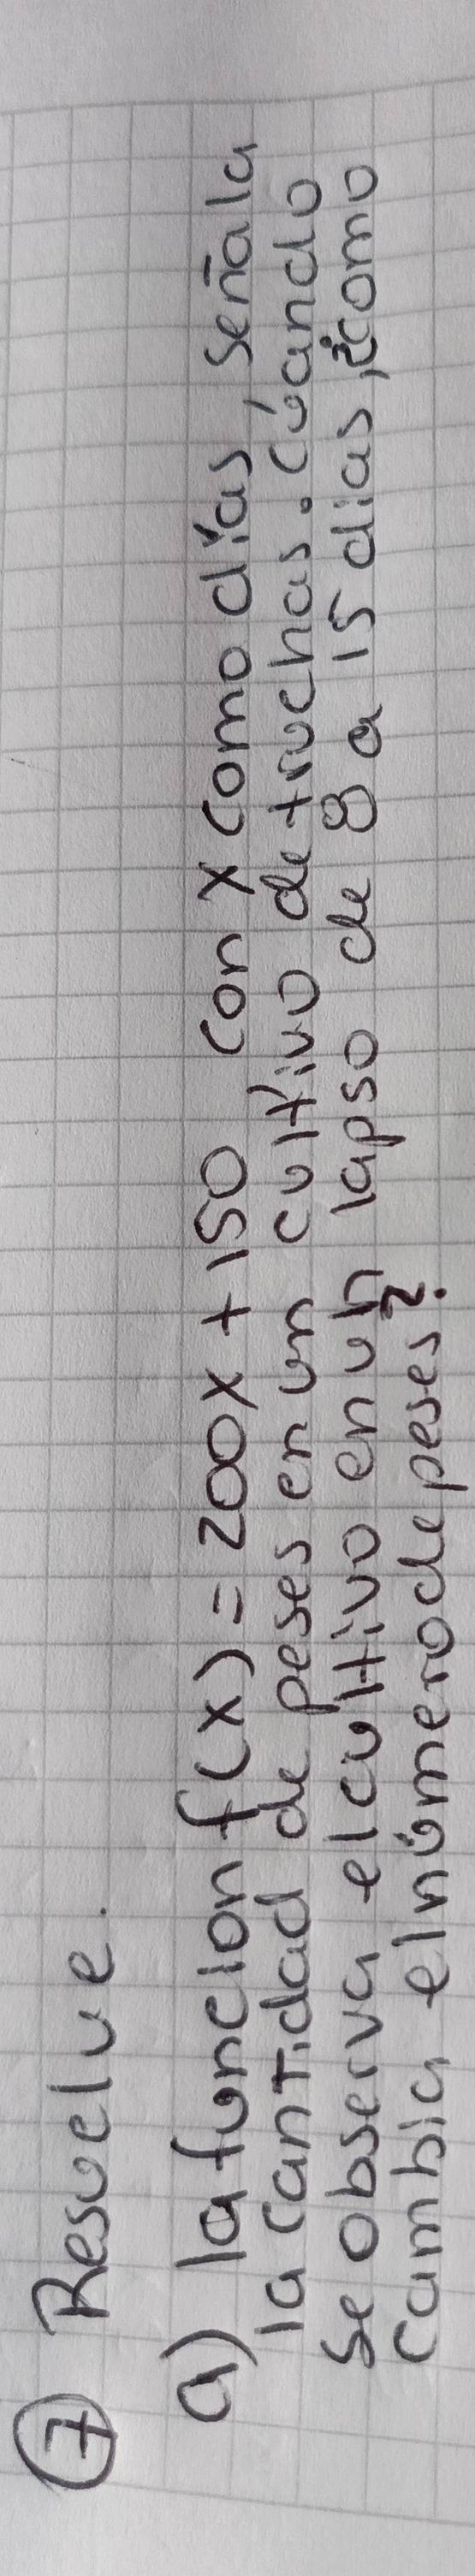 7 Resuelve.
a) la función f(x) = 200x + 150 con x como días, señala
la cantidad de peses en un cultivo de truchas. Cúando
se observa el cultivo en un lapso de 8 a 15 dias, ¿como
cambia el número de peses?